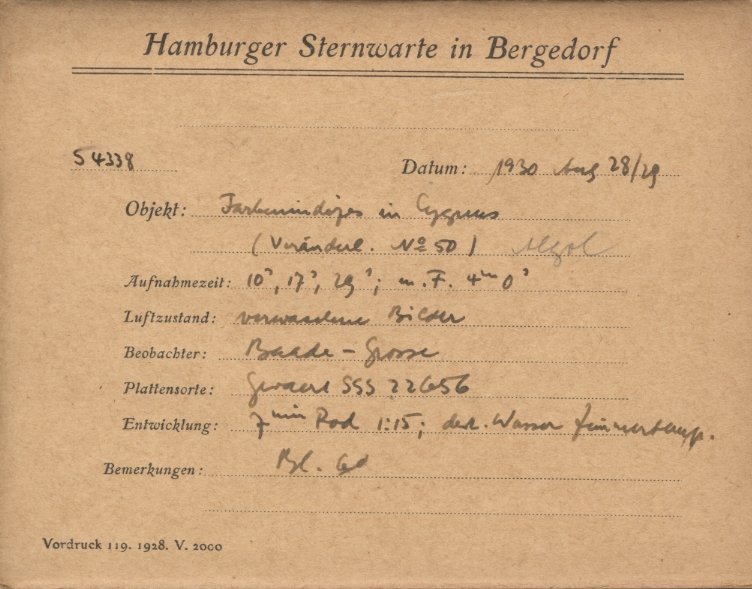 Hamburger Sternwarte in Bergedorf
S 4338 Datum: 1930 Aug 28/29
Objekt: Farbenindizes in Cygnus
(Veränderl. No 50) Algol
Aufnahmezeit: 10s, 17s, 29s; m. F. 4m 0s
Luftzustand: verwaschene Bilder
Beobachter: Baade – Grosse
Plattensorte: Gevaert SSS 22656
Entwicklung: 7min Rod 1:15; dest. Wasser Zimmertemp.
Bemerkungen: Bl. 60
Vordruck 119. 1928. V. 2000